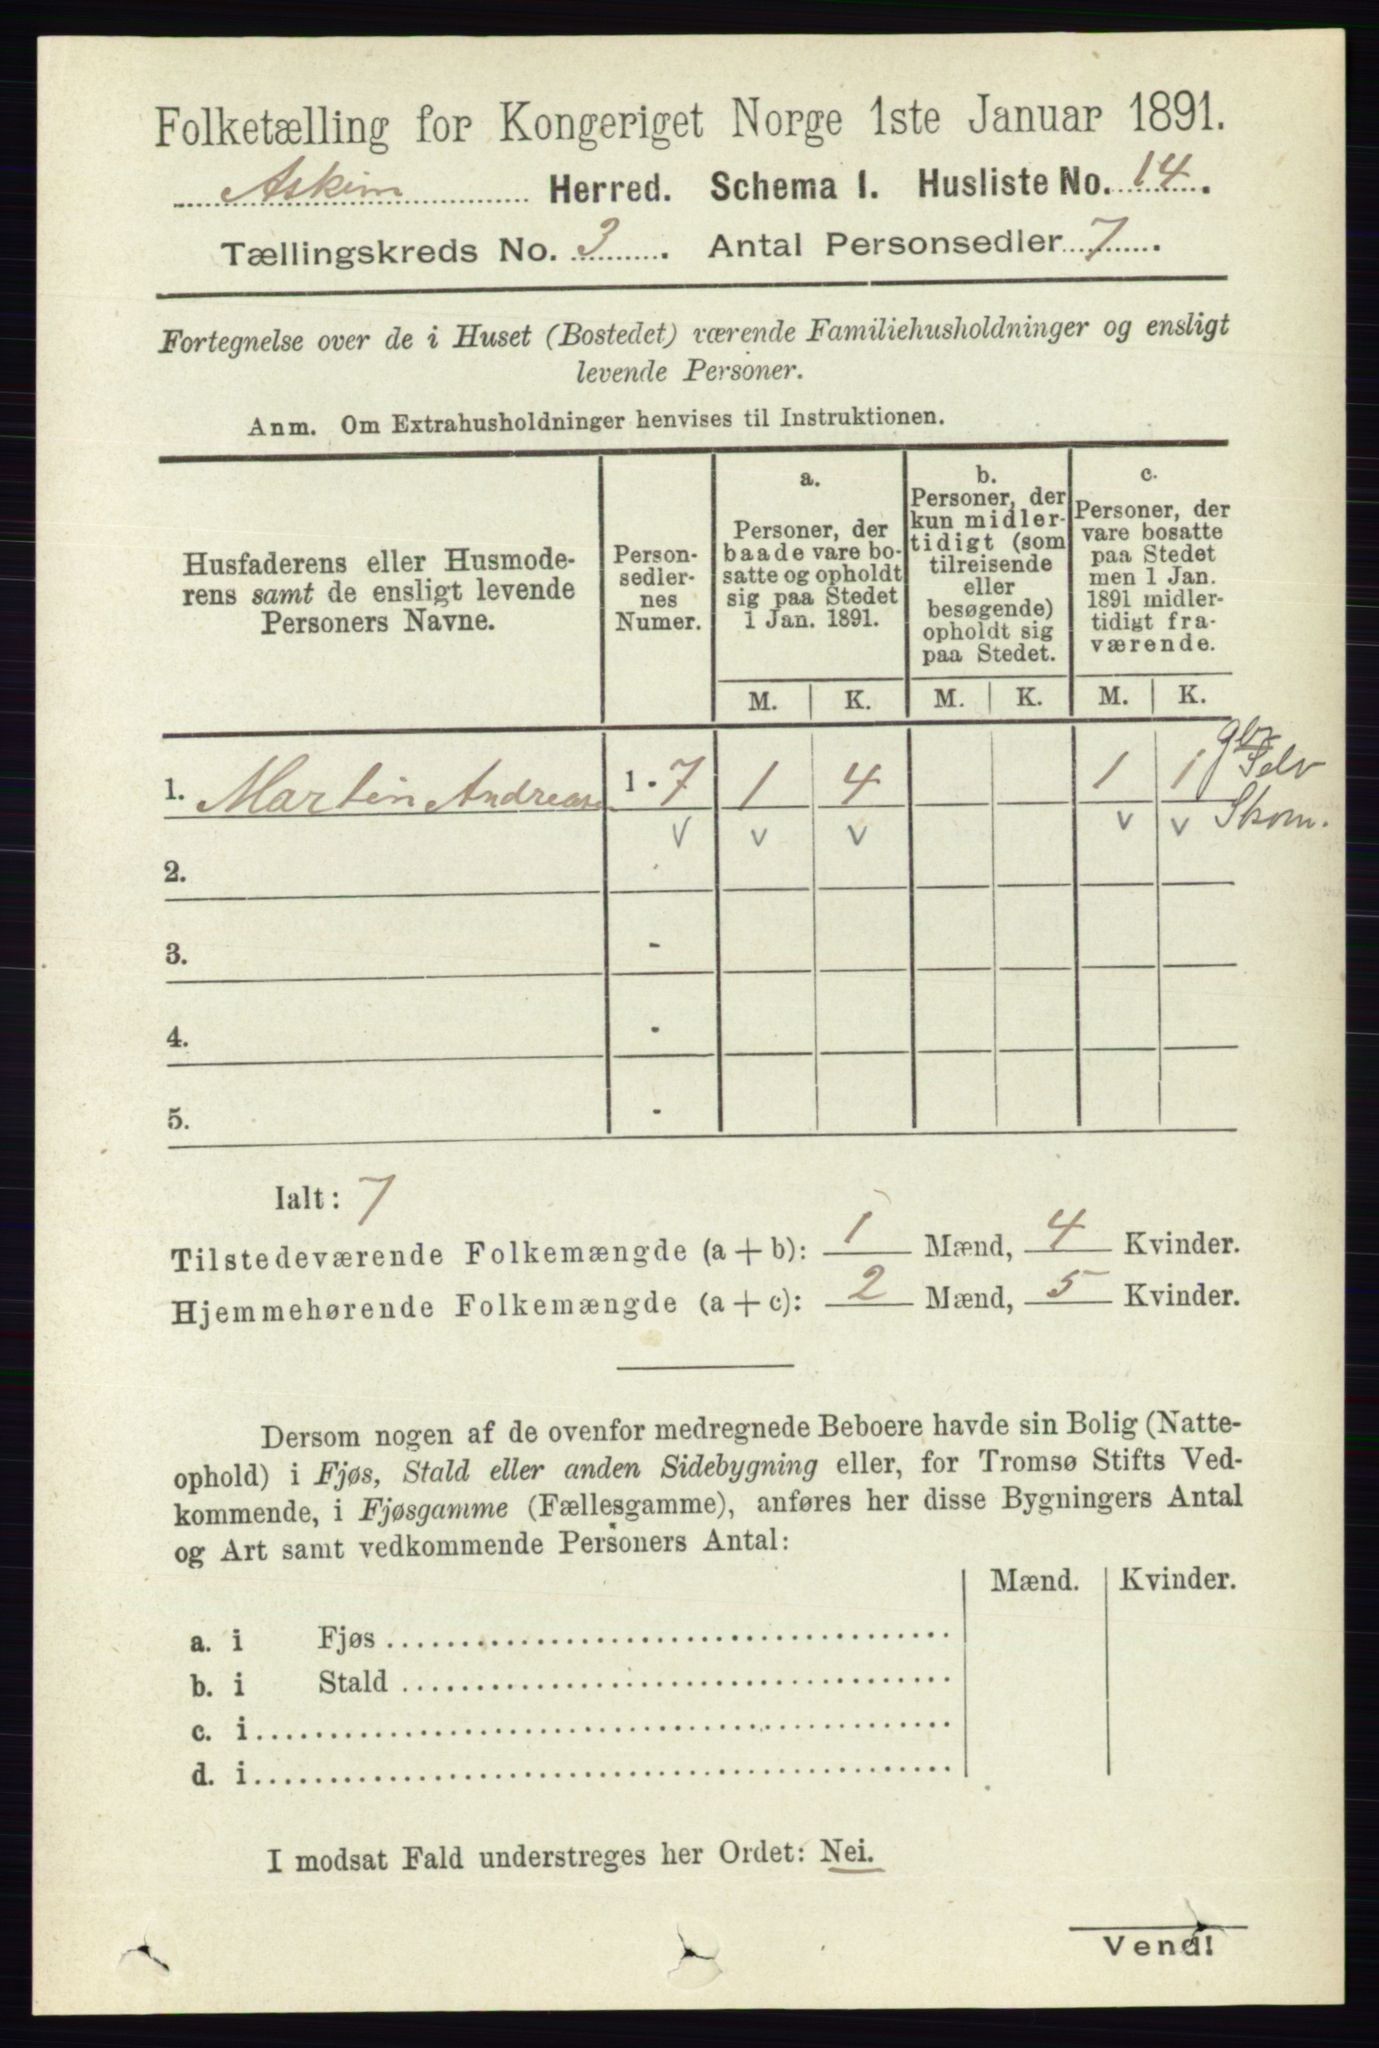 Folketælling for Kongeriget Norge 1ste Januar 1891.
Askim Herred. Schema I. Husliste No. 14.
Tællingskreds No. 3. Antal Personsedler 7.
Fortegnelse over de i Huset (Bostedet) værende Familiehusholdninger og ensligt
levende Personer.
Anm. Om Extrahusholdninger henvises til Instruktionen.
Husfaderens eller Husmode-
rens samt de ensligt levende
Personers Navne.
Person-
sedler-
nes
Numer.
a.
Personer, der
baade vare bo-
satte og opholdt
sig paa Stedet
1 Jan. 1891.
b.
Personer, der
kun midler-
tidigt (som
tilreisende
eller
besøgende)
opholdt sig
paa Stedet.
c.
Personer, der
vare bosatte
paa Stedet
men 1 Jan.
1891 midler-
tidigt fra-
værende.
M. K. M. K. M. K.
1. Martin Andreas 1 - 7 1 4 1 1 gbr Selv
v v v v v Skom.
2.
3. -
4. -
5. -
Ialt: 7
Tilstedeværende Folkemængde (a + b): 1 Mænd, 4 Kvinder.
Hjemmehørende Folkemængde (a + c): 2 Mænd, 5 Kvinder.
Dersom nogen af de ovenfor medregnede Beboere havde sin Bolig (Natte-
ophold) i Fjøs, Stald eller anden Sidebygning eller, for Tromsø Stifts Ved-
kommende, i Fjøsgamme (Fællesgamme), anføres her disse Bygningers Antal
og Art samt vedkommende Personers Antal:
Mænd. Kvinder.
a. i Fjøs
b. i Stald
c. i
d. i
I modsat Fald understreges her Ordet: Nei.
Vend!